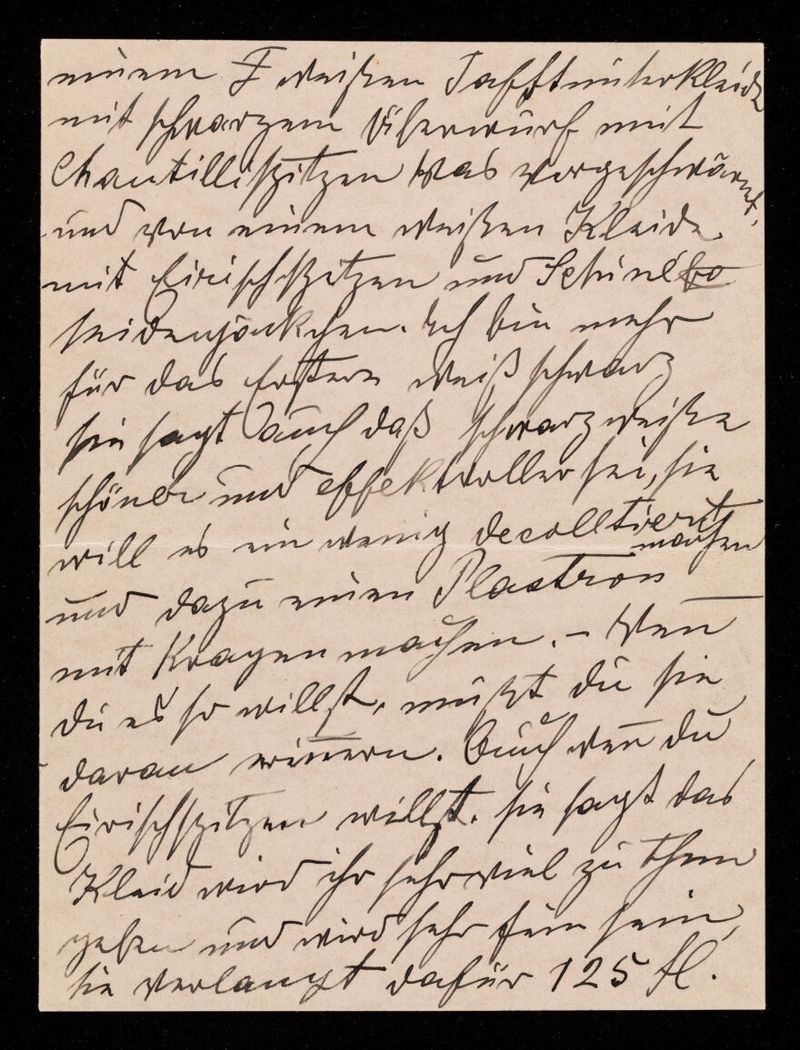 einem weißen Tafftunterkleide
mit schwarzem Überwurf mit
Chantillispitzen was vorgeschwärmt,
und von einem weißen Kleide
mit Eirischspitzen und
seidenjäckchen. Ich bin mehr
für das Erstere weiß schwarz
sie sagt auch daß schwarzweiße
schöner und effektvoller sei, sie
will es ein wenig decolltiert
machen
und dazu einen Plastron
mit Kragen machen. – Wen̄
du es so willst, mußt du sie
daran erin̄ern. Auch wen̄ du
Eirischspitzen willst. sie sagt das
Kleid wird ihr sehr viel zu thun
geben und wird sehr fein sein,
sie verlangt dafür 125 fl.